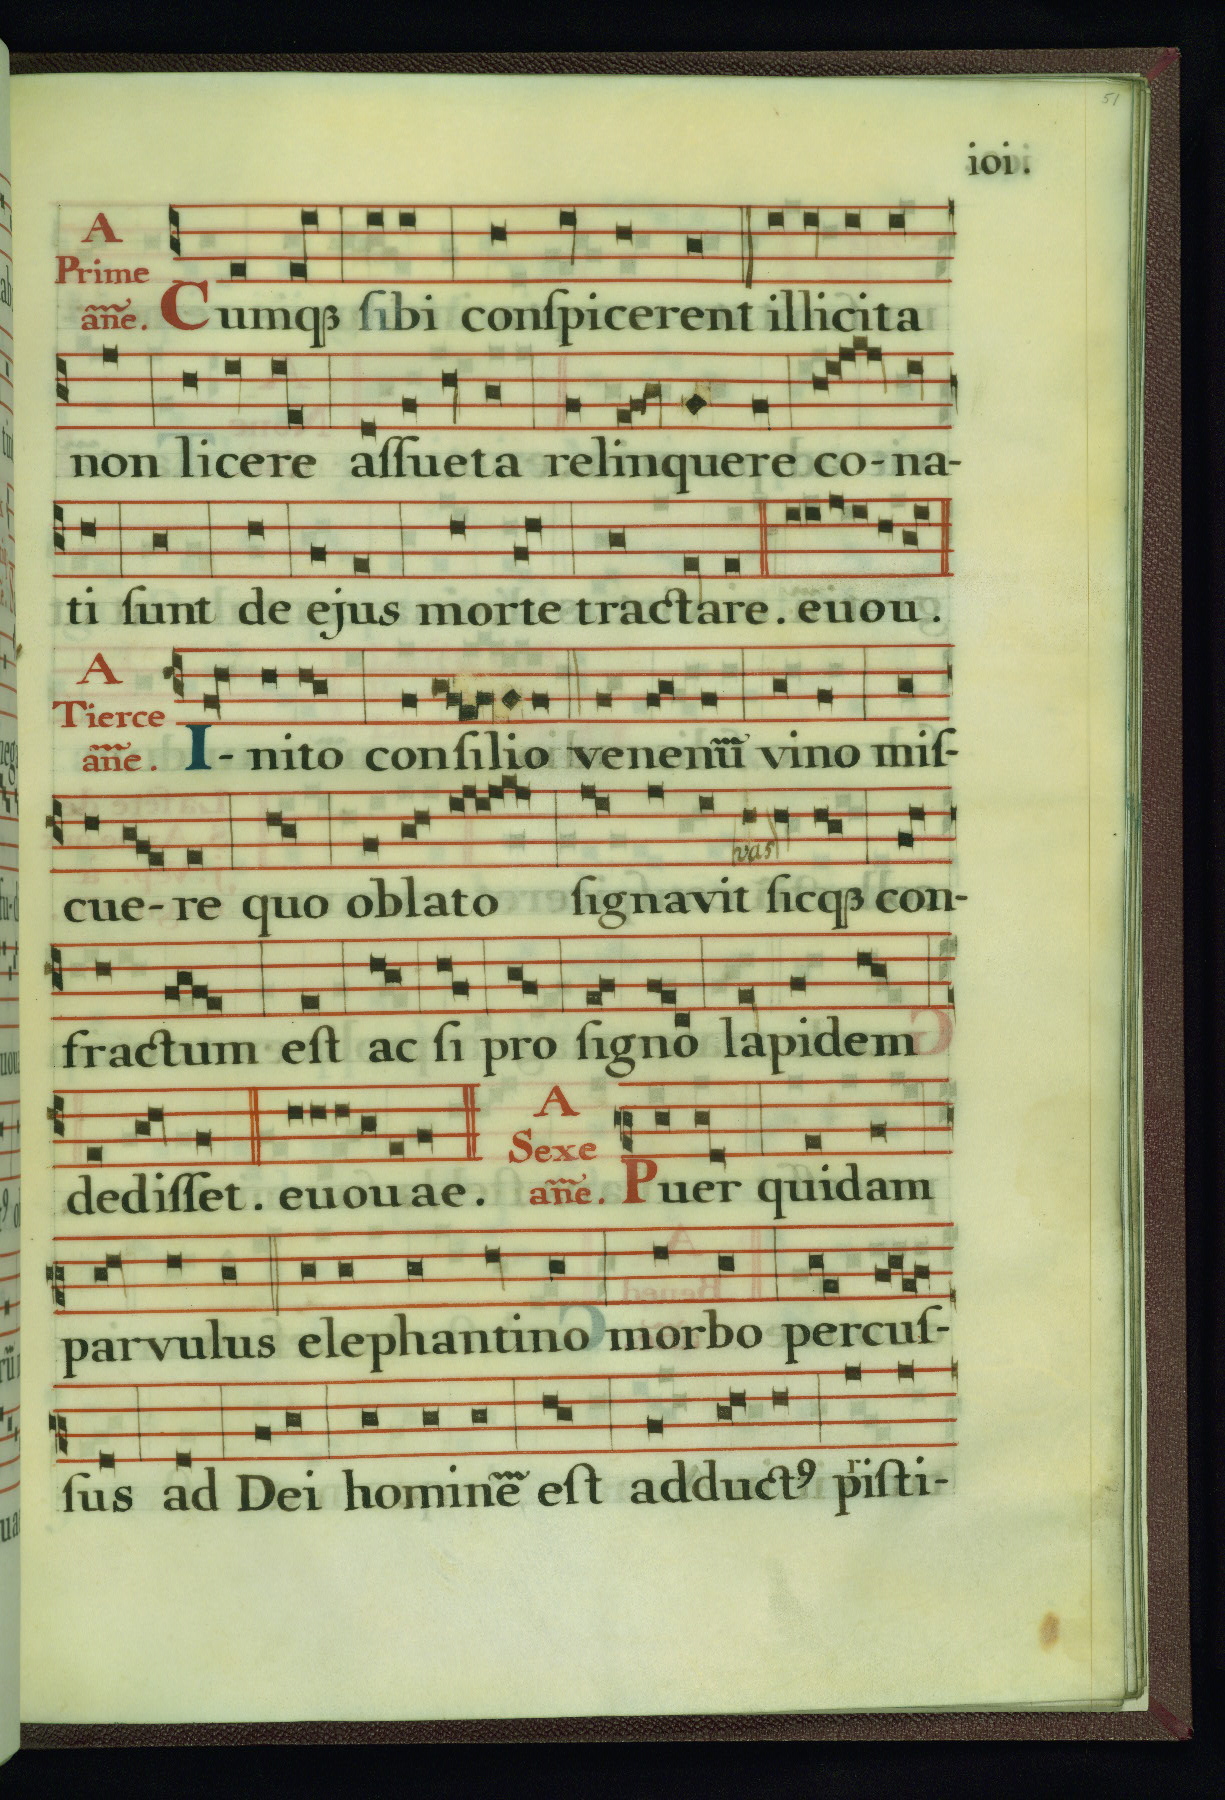 51
ioi.
A
Prime
añe. Cumqꝫ ſibi conſpicerent illicita
non licere aſſueta relinquere co-na-
ti ſunt de ejus morte tractare. euou.
A
Tierce
añe. I-nito conſilio venenū vino miſ-
vas
cue-re quo oblato ſignavit ſicqꝫ con-
fractum eſt ac ſi pro ſigno lapidem
A
Sexe
dediſſet. euouae. añe. Puer quidam
parvulus elephantino morbo percuſ-
ſus ad Dei hominē eſt adductꝰ